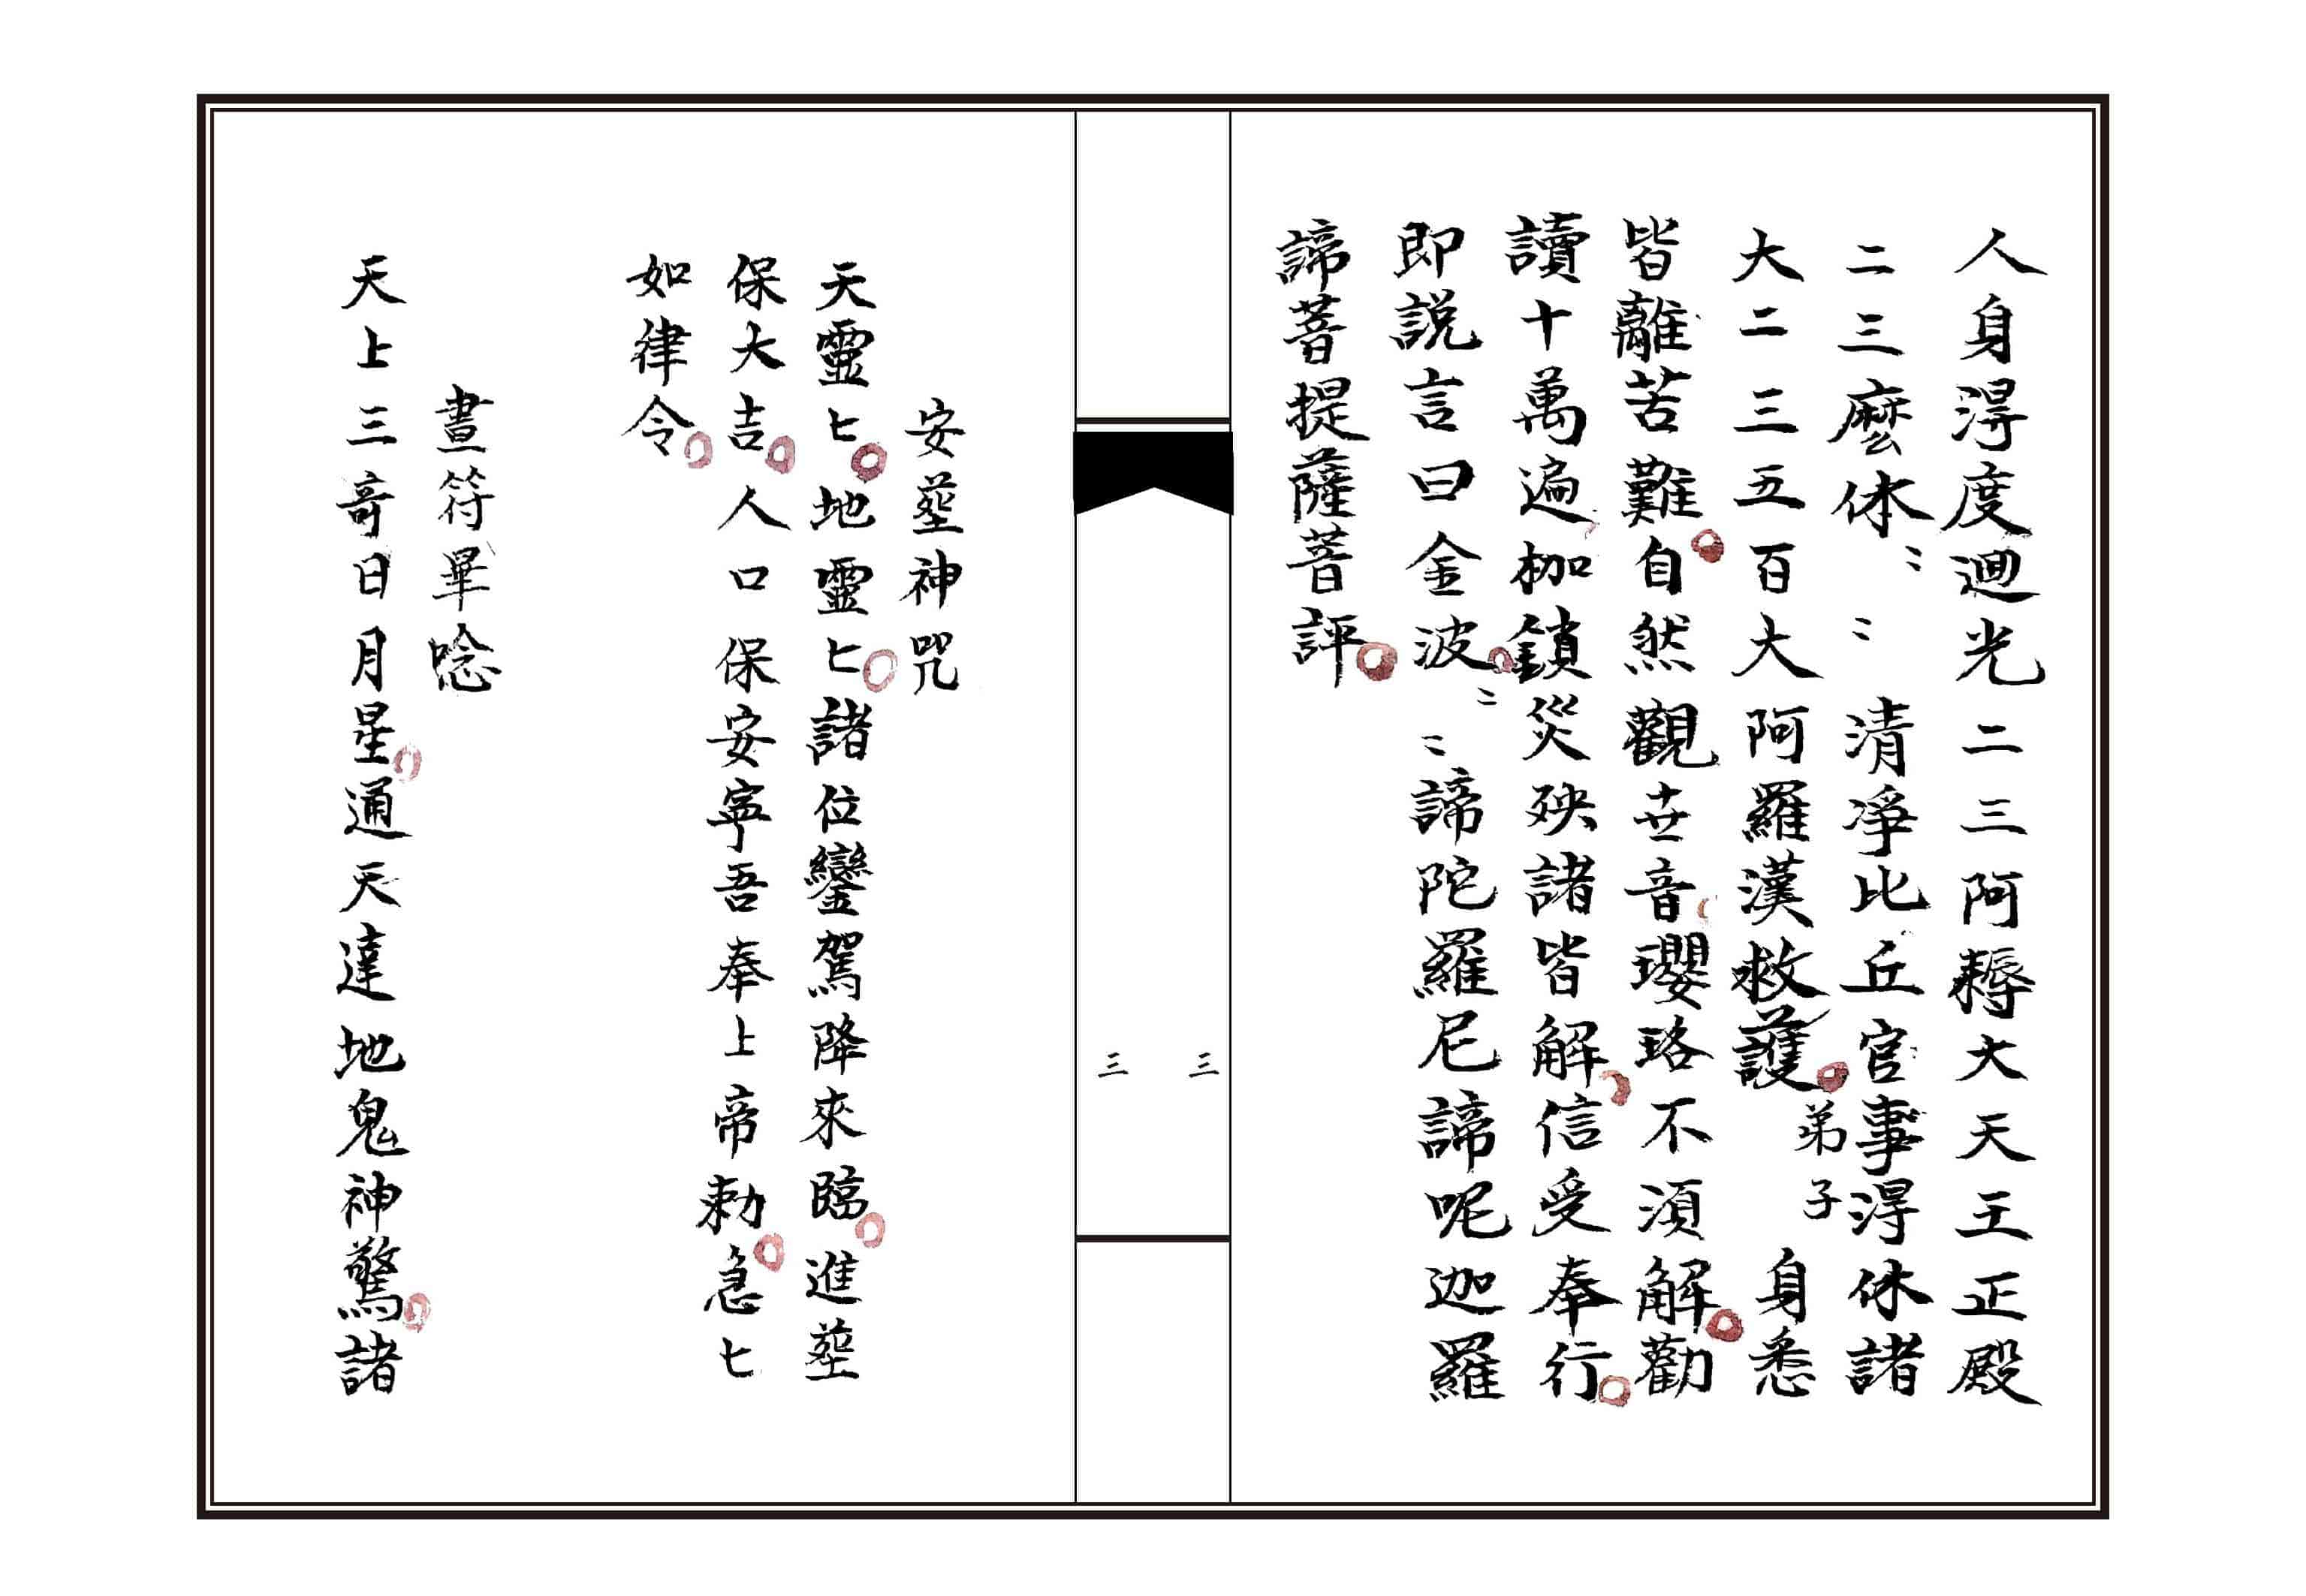 人身淂度迴光二三阿耨大天王正殿
二三麽休〻〻清淨比丘官事淂休諸
大二三五百大阿羅漢救護弟子身悉
皆離苦難自然觀世音瓔珞不須解勸
讀十萬遍枷鎖災殃諸皆解信受奉行
即説言曰金波〻〻諦陀羅尼諦呢迦羅
諦菩提薩菩評
三
三
安𦵏神咒
天靈匕地靈匕諸位鑾駕降來臨進𦵏
保大吉人口保安寧吾奉上帝勅急匕
如律令
畫符畢唸
天上三竒日月星通天達地鬼神驚諸